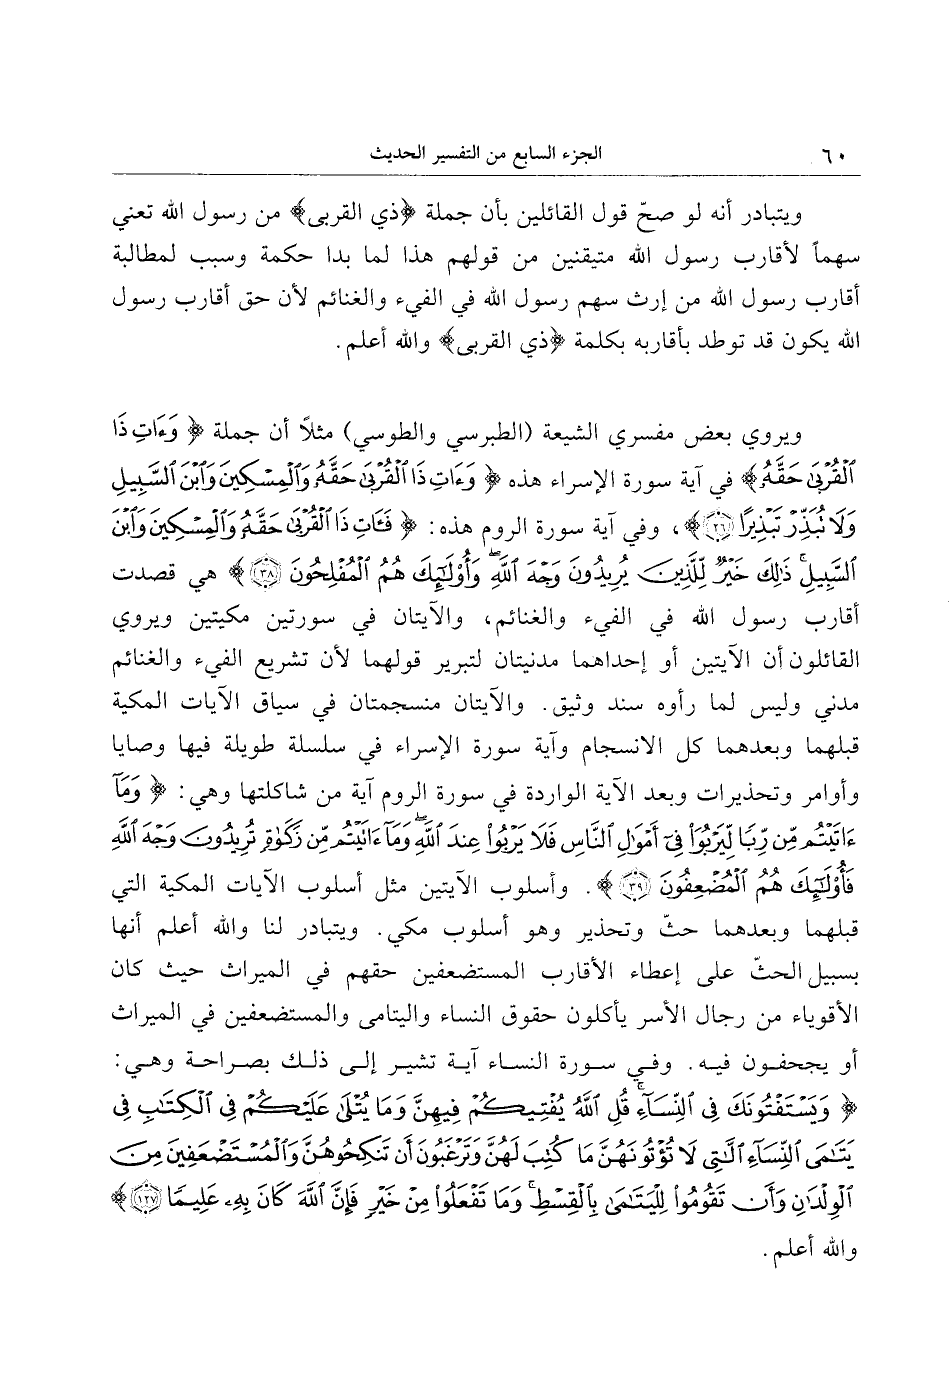 ٦٠ الجزء السابع من التفسير الحديث
ويتبادر أنه لو صحّ قول القائلين بأن جملة ﴿ذي القربى﴾ من رسول الله تعني
سهماً لأقارب رسول الله متيقنين من قولهم هذا لما بدا حكمة وسبب لمطالبة
أقارب رسول الله من إرث سهم رسول الله في الفيء والغنائم لأن حق أقارب رسول
الله يكون قد توطد بأقاربه بكلمة ﴿ذي القربى﴾ والله أعلم.
ويروي بعض مفسري الشيعة (الطبرسي والطوسي) مثلاً أن جملة ﴿ وَءَاتِ ذَا
ٱلْقُرْبَىٰ حَقَّهُۥ﴾ في آية سورة الإسراء هذه ﴿ وَءَاتِ ذَا ٱلْقُرْبَىٰ حَقَّهُۥ وَٱلْمِسْكِينَ وَٱبْنَ ٱلسَّبِيلِ
وَلَا تُبَذِّرْ تَبْذِيرًا ٢٦﴾، وفي آية سورة الروم هذه: ﴿ فَـَٔاتِ ذَا ٱلْقُرْبَىٰ حَقَّهُۥ وَٱلْمِسْكِينَ وَٱبْنَ
ٱلسَّبِيلِ ۚ ذَٰلِكَ خَيْرٌ لِّلَّذِينَ يُرِيدُونَ وَجْهَ ٱللَّهِ ۖ وَأُو۟لَٰٓئِكَ هُمُ ٱلْمُفْلِحُونَ ٣٨﴾ هي قصدت
أقارب رسول الله في الفيء والغنائم، والآيتان في سورتين مكيتين ويروي
القائلون أن الآيتين أو إحداهما مدنيتان لتبرير قولهما لأن تشريع الفيء والغنائم
مدني وليس لما رأوه سند وثيق. والآيتان منسجمتان في سياق الآيات المكية
قبلهما وبعدهما كل الانسجام وآية سورة الإسراء في سلسلة طويلة فيها وصايا
وأوامر وتحذيرات وبعد الآية الواردة في سورة الروم آية من شاكلتها وهي: ﴿ وَمَآ
ءَاتَيْتُم مِّن رِّبًا لِّيَرْبُوَا۟ فِىٓ أَمْوَٰلِ ٱلنَّاسِ فَلَا يَرْبُوا۟ عِندَ ٱللَّهِ ۖ وَمَآ ءَاتَيْتُم مِّن زَكَوٰةٍ تُرِيدُونَ وَجْهَ ٱللَّهِ
فَأُو۟لَٰٓئِكَ هُمُ ٱلْمُضْعِفُونَ ٣٩﴾. وأسلوب الآيتين مثل أسلوب الآيات المكية التي
قبلهما وبعدهما حثّ وتحذير وهو أسلوب مكي. ويتبادر لنا والله أعلم أنها
بسبيل الحثّ على إعطاء الأقارب المستضعفين حقهم في الميراث حيث كان
الأقوياء من رجال الأسر يأكلون حقوق النساء واليتامى والمستضعفين في الميراث
أو يجحفون فيه. وفي سورة النساء آية تشير إلى ذلك بصراحة وهي:
﴿ وَيَسْتَفْتُونَكَ فِى ٱلنِّسَآءِ ۖ قُلِ ٱللَّهُ يُفْتِيكُمْ فِيهِنَّ وَمَا يُتْلَىٰ عَلَيْكُمْ فِى ٱلْكِتَٰبِ فِى
يَتَٰمَى ٱلنِّسَآءِ ٱلَّٰتِى لَا تُؤْتُونَهُنَّ مَا كُتِبَ لَهُنَّ وَتَرْغَبُونَ أَن تَنكِحُوهُنَّ وَٱلْمُسْتَضْعَفِينَ مِنَ
ٱلْوِلْدَٰنِ وَأَن تَقُومُوا۟ لِلْيَتَٰمَىٰ بِٱلْقِسْطِ ۚ وَمَا تَفْعَلُوا۟ مِنْ خَيْرٍ فَإِنَّ ٱللَّهَ كَانَ بِهِۦ عَلِيمًا ١٢٧﴾
والله أعلم.